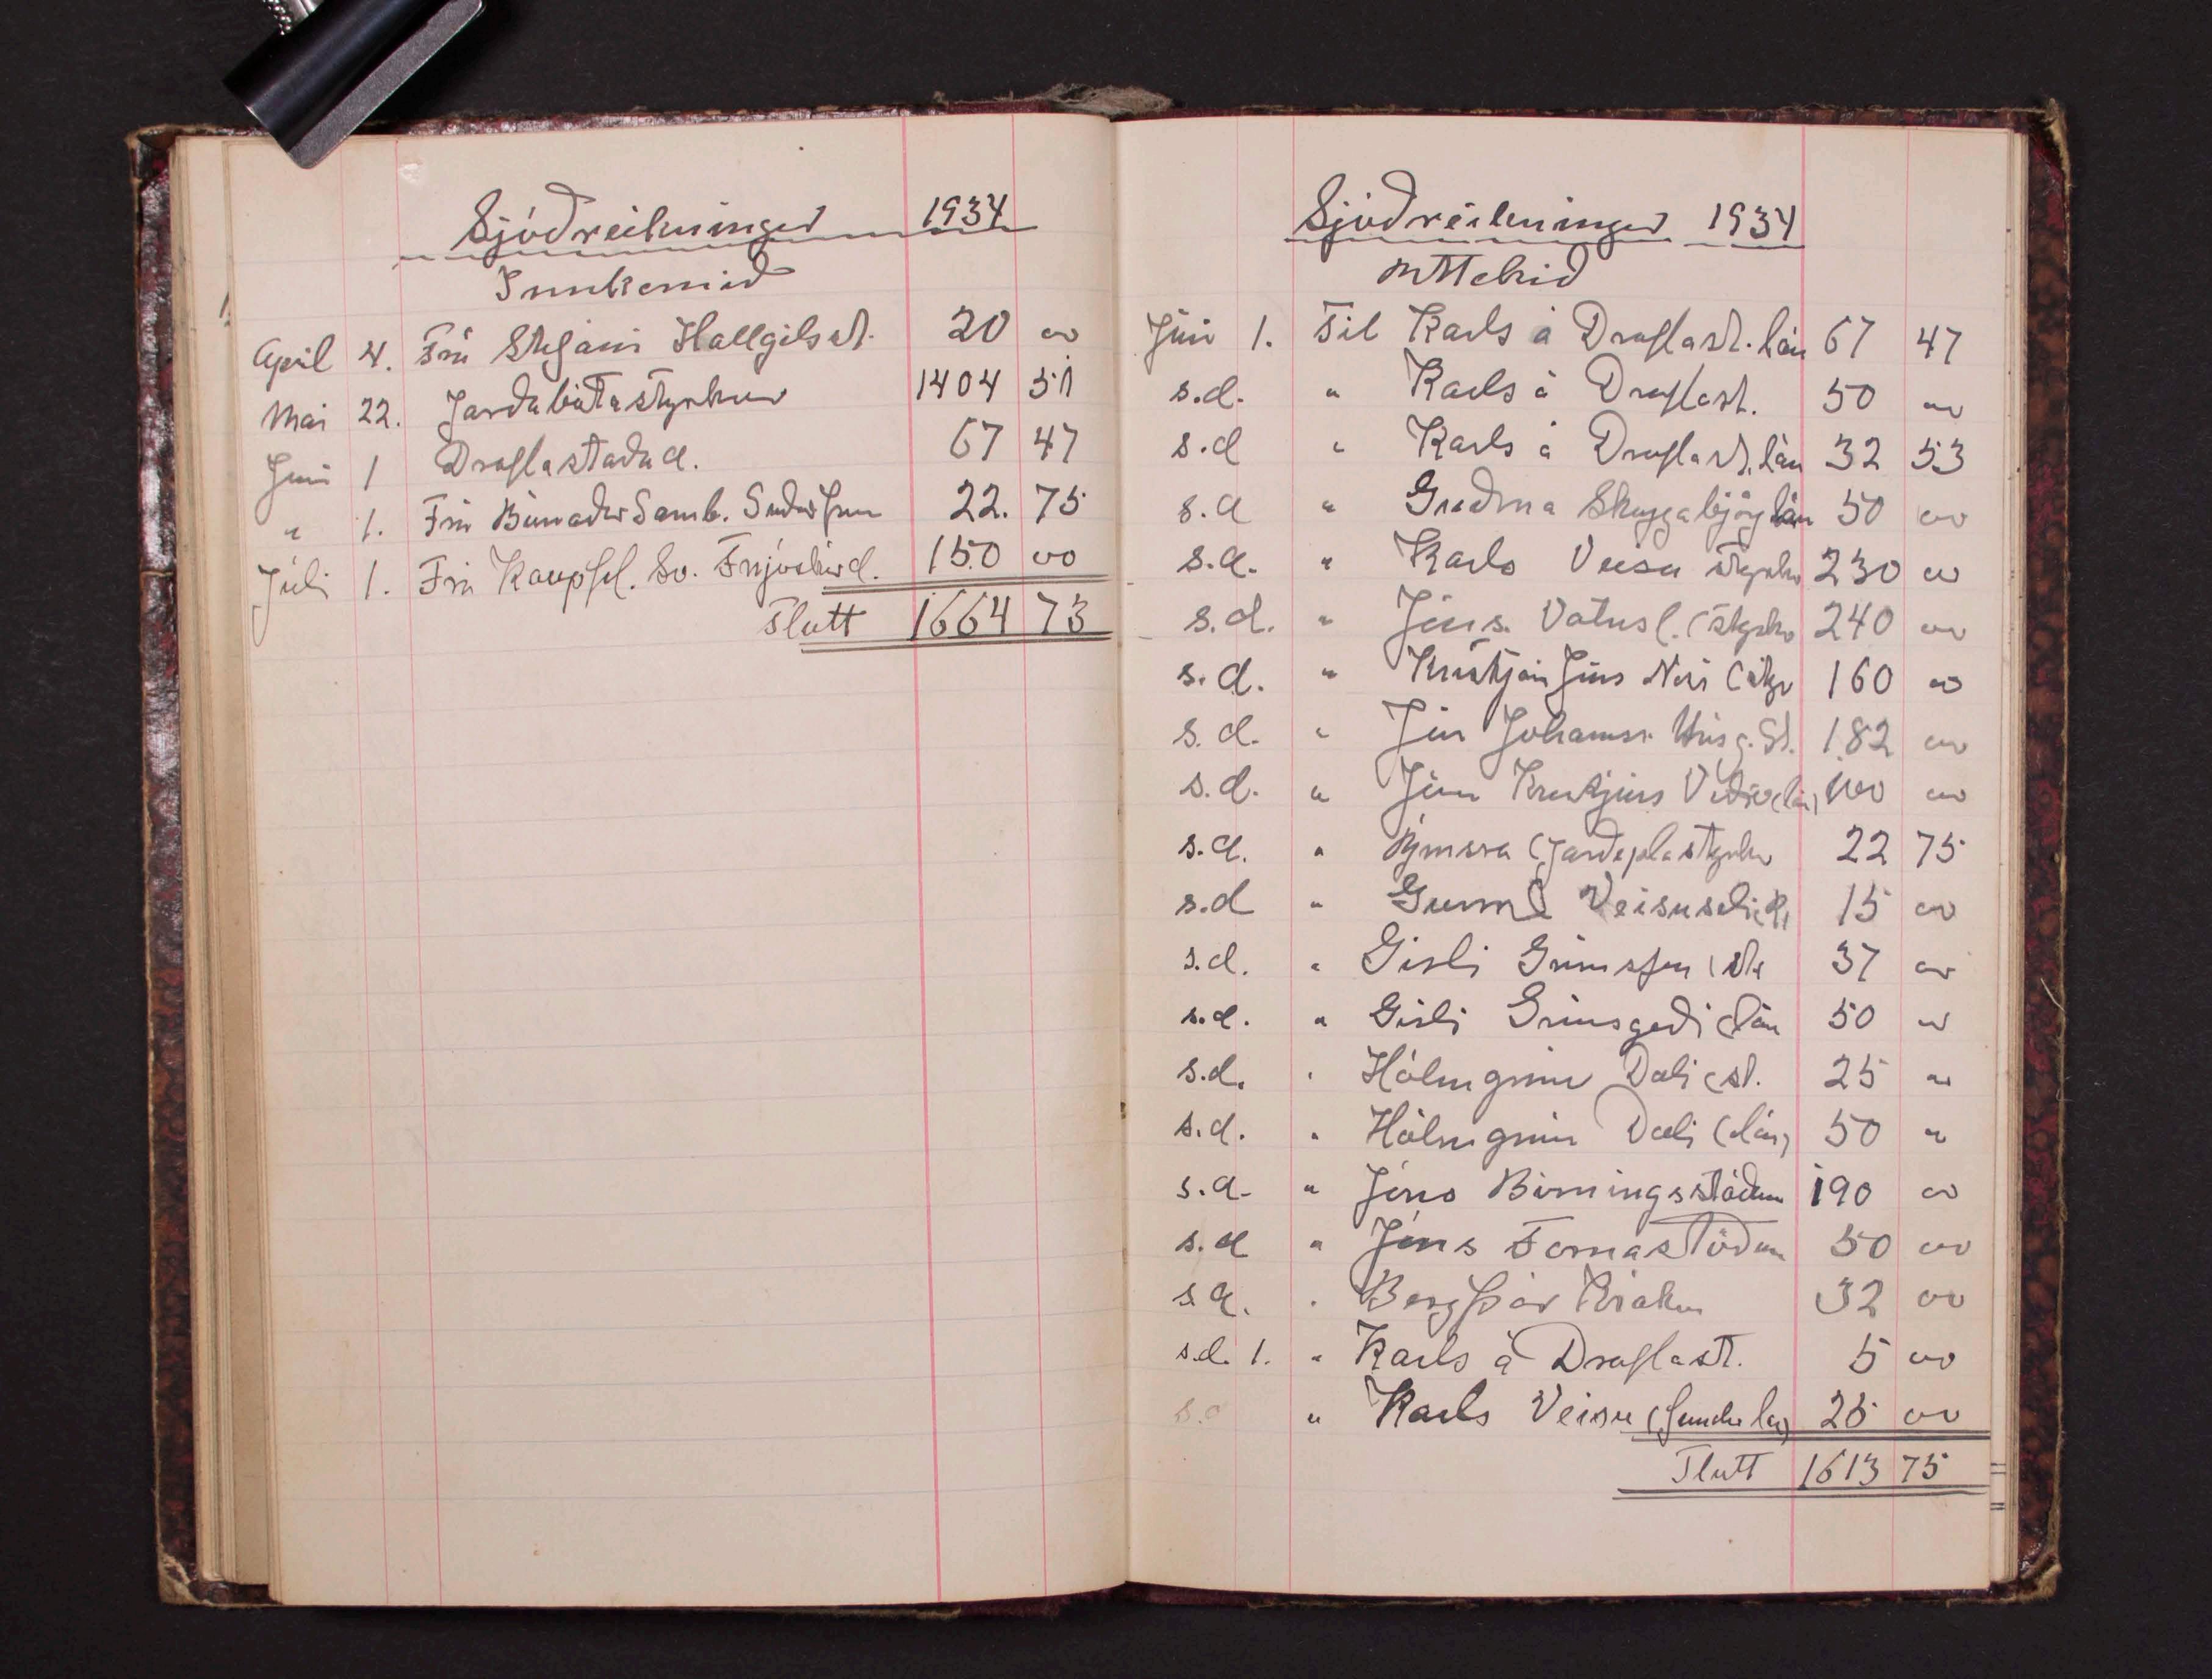 Sjóðreikningur 1934
Innkomið
Apríl 4. Frá Stefáni Hallgilsst. 20 00
Maí 22. Jarðabótastyrkur 1404 51
Júní 1 Draflastaða d. 67 47
" 1. Frá Búnaðar Samb. Suðurþin 22. 75
Júlí 1. Frá Kaupfél. Sv. Fnjóskárd. 150 00
Flutt 1664 73
Sjóðreikningur 1934
Úttekið
Júní 1. Til Karls á Draflast. lán 67 47
s.d. " Karls á Draflast. 50 00
s.d " Karls á Draflast. lán 32 53
s.d " Guðna Skuggabjörg lán 50 00
s.d. " Karls Veisu styrkr 230 00
s.d. " Jóns. Vatnsl. (styrkr 240 00
s.d. " Kristján Jóns Nesi 160 00
s.d. " Jón Johannss. 182 00
s.d. " Jón Kristjáns (lán) 100 00
s.d. " Ýmsra (Jarðeplastyrkr 22 75
s.d " Gunnl Veisuseli 15 00
s.d. " Gísli 37 00
s.d. " Gísli Grímsgerði (lán 50 00
s.d. " Hólmgrím Dali (st. 25 "
s.d. " Hólmgrím Dali (lán) 50 "
s.d. " Jóns Birningsstöðum 190 00
s.d " Jóns Fornastöðum 50 00
s.d. " Bergþór 32 00
s.d. 1. " Karls á Draflast. 5 00
s.d " Karls Veisu 25 00
Flutt 1613 75